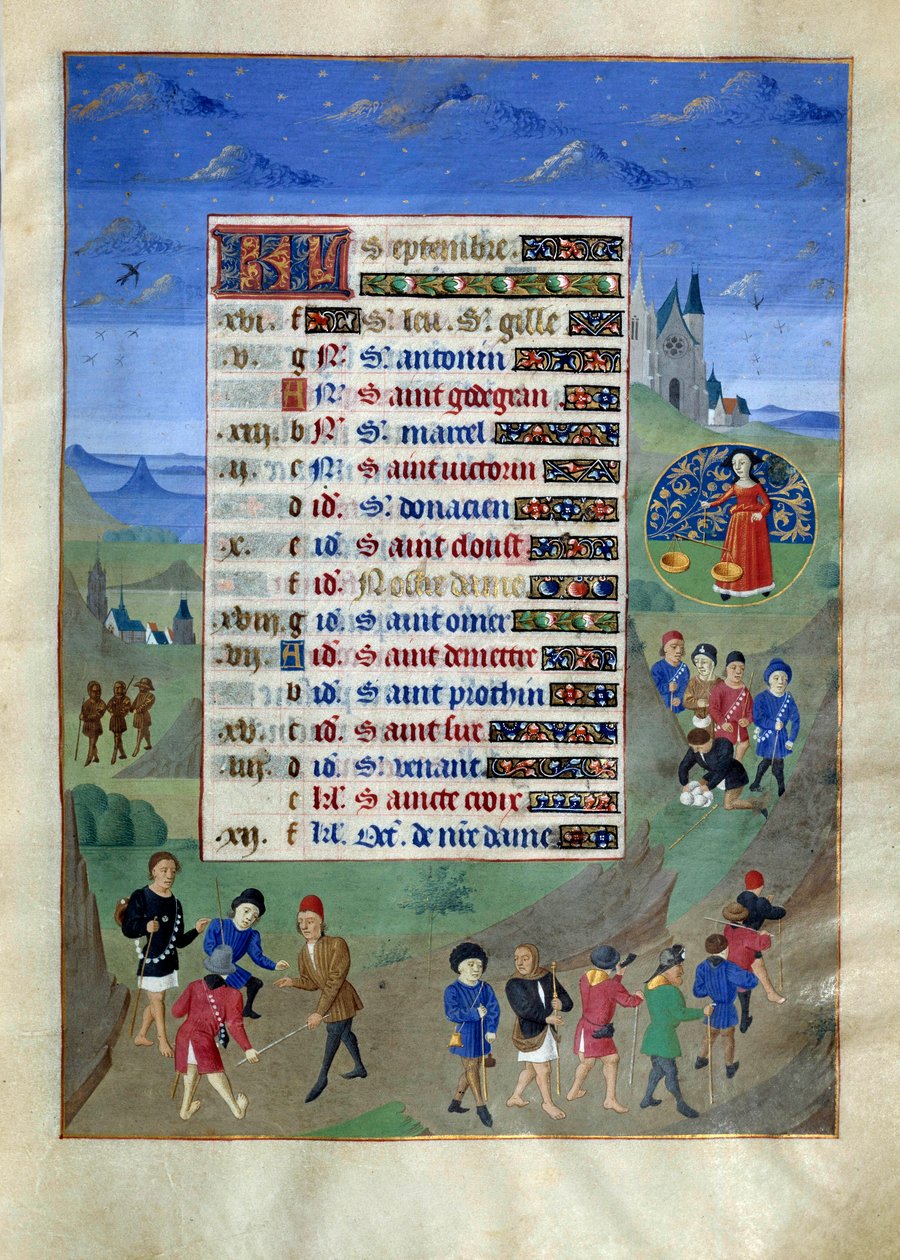 KL Septembre.
xvi. f S. leu. S. gille
v. g N. S. antonin
A N. Saint godegran
xiii. b N. S. marcel
ii. c N. Saint victorin
d id. S. donacien
x. e id. Saint cloust
f id. Nostre dame
xviii. g id. Saint omer
vii. A id. Saint demettre
b id. Saint prothin
xv. c id. Saint sir
iiii. d id. S. venant
e kl. Saincte croix
xii. f kl. Oct. de nre dame